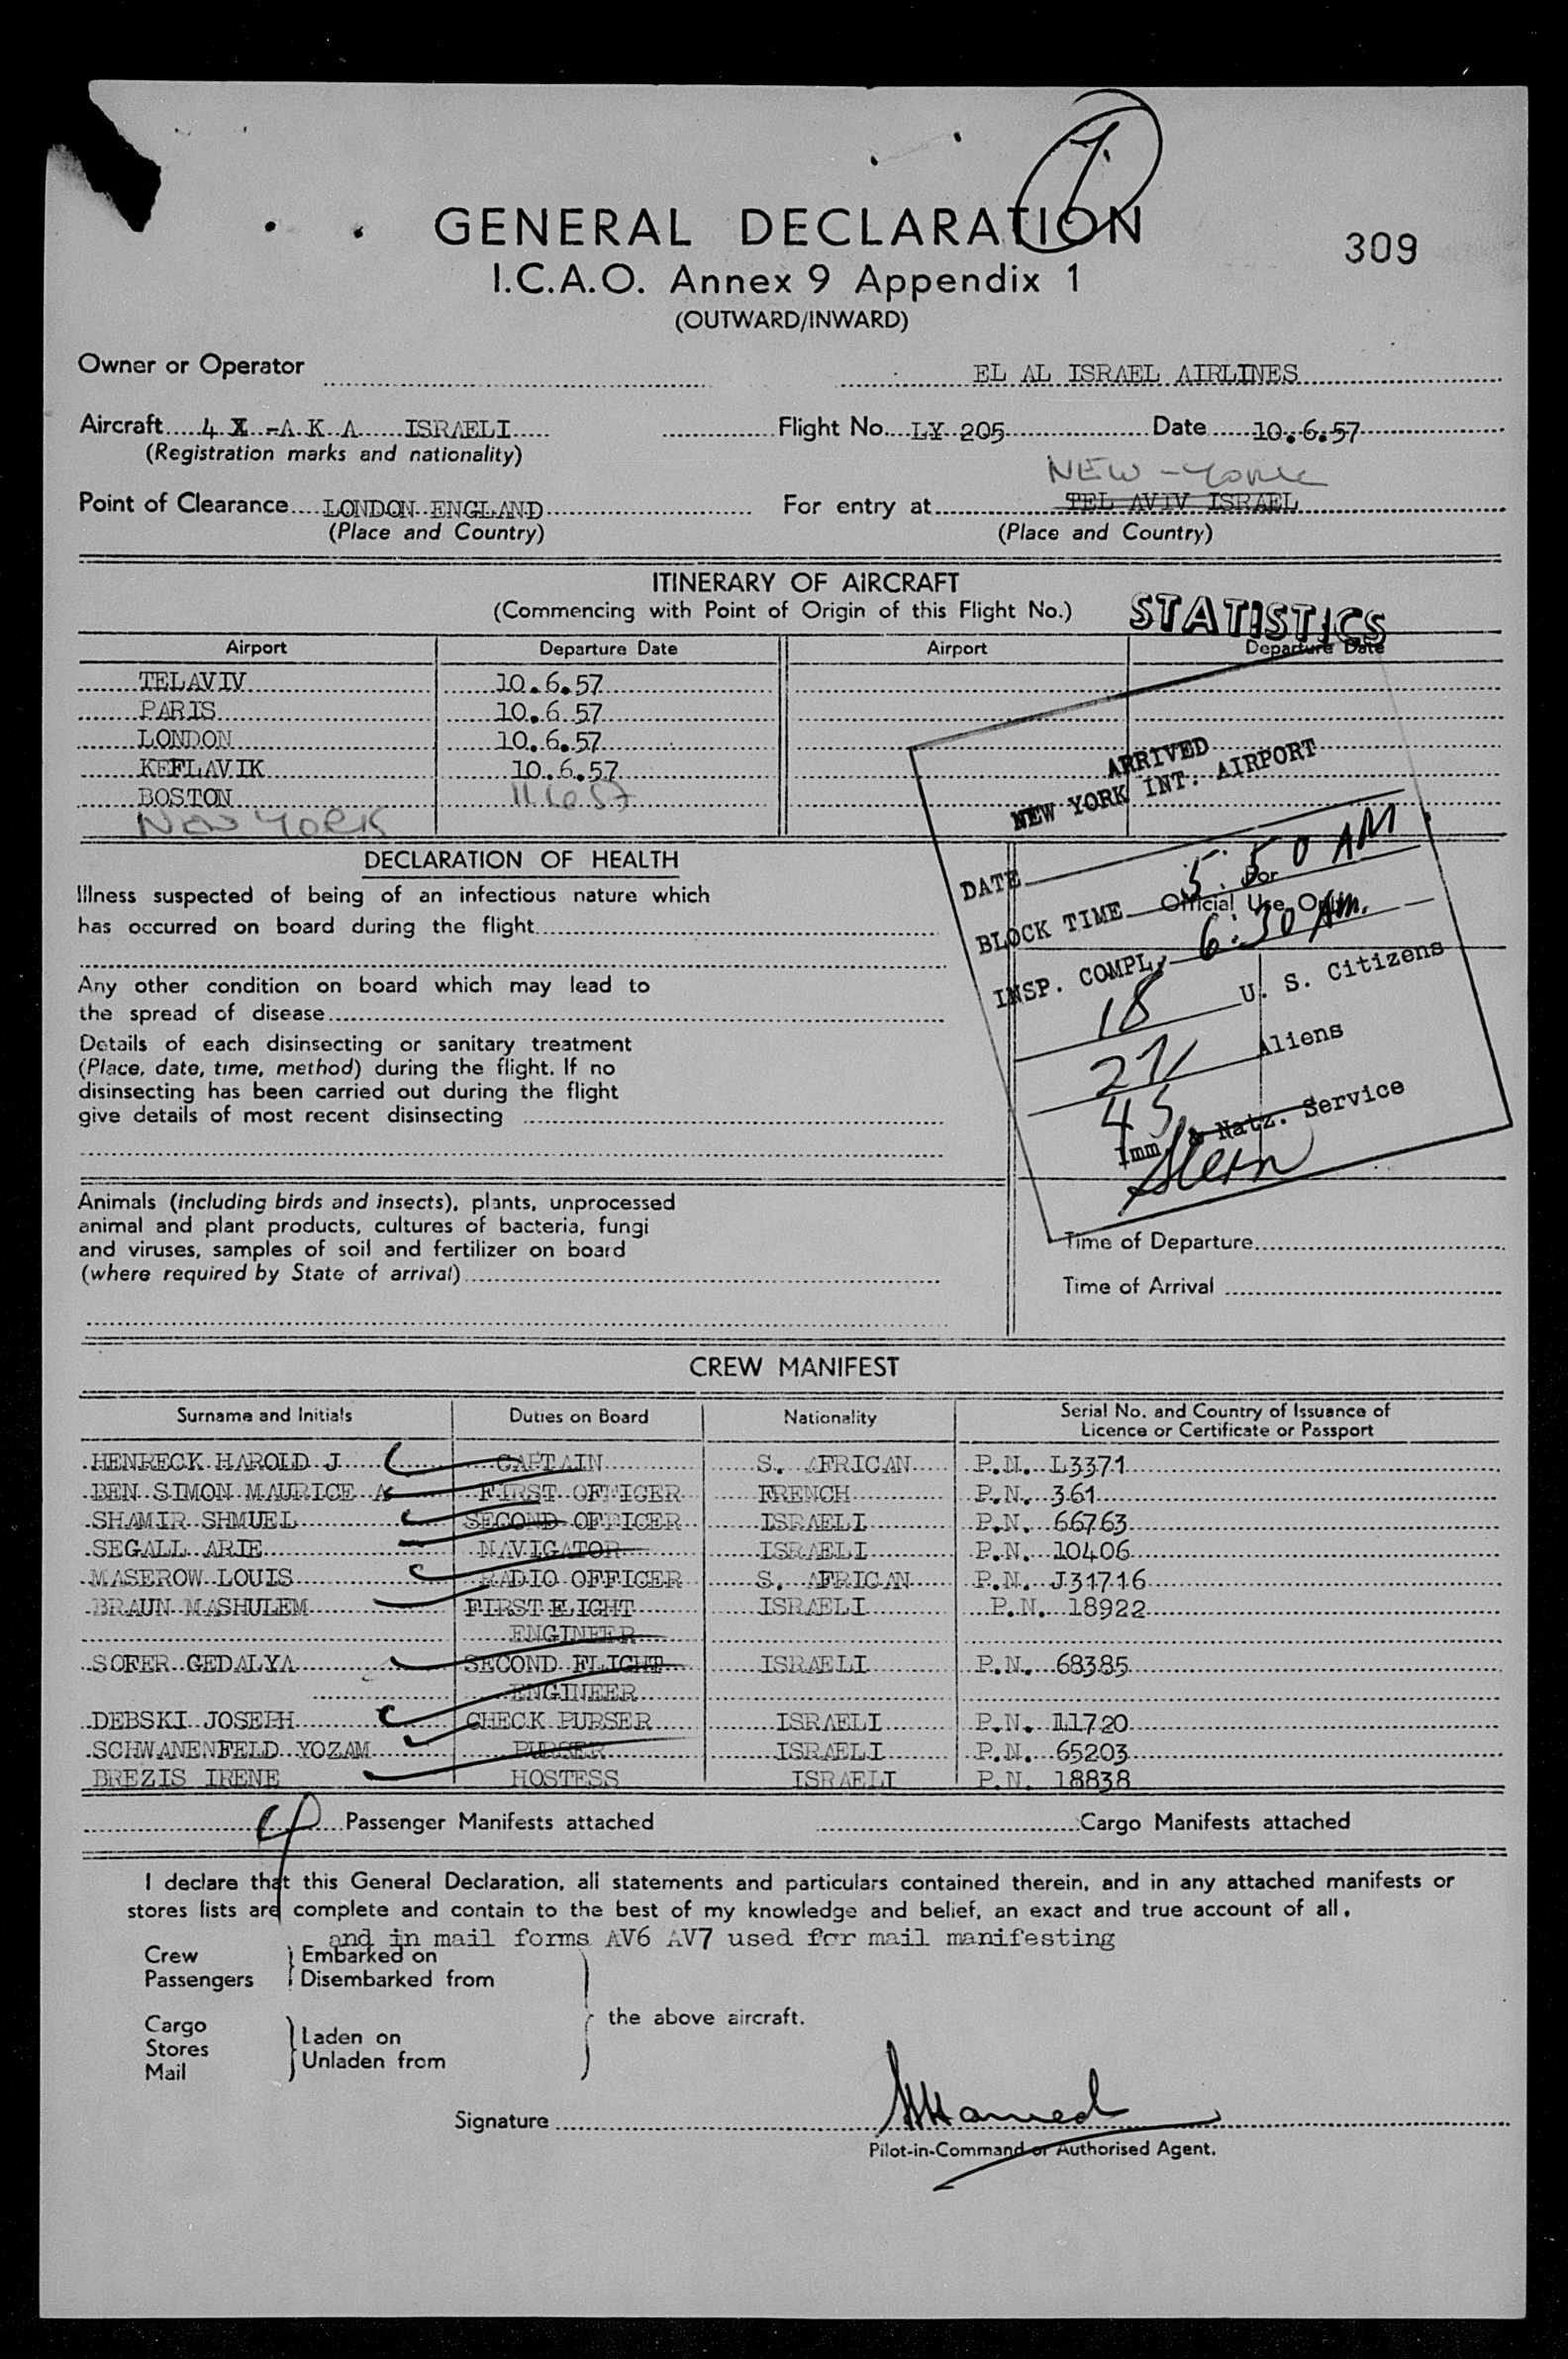 GENERAL DECLARATION
309
I.C.A.O. Annex 9 Appendix 1
(OUTWARD/INWARD)
Owner or Operator EL AL ISRAEL AIRLINES
Aircraft 4 X -A K A ISRAELI Flight No. LY 205 Date 10.6.57
(Registration marks and nationality)
NEW-YORK
Point of Clearance LONDON ENGLAND For entry at TEL AVIV ISRAEL
(Place and Country) (Place and Country)
ITINERARY OF AIRCRAFT
(Commencing with Point of Origin of this Flight No.)
STATISTICS
Airport Departure Date Airport Departure Date
TELAVIV 10.6.57
PARIS 10.6.57
LONDON 10.6.57
KEFLAVIK 10.6.57
BOSTON 11.6.57
NEW YORK
ARRIVED
NEW YORK INT. AIRPORT
DATE
BLOCK TIME 5:50 AM
INSP. COMPL. 6:30 AM.
18 U. S. Citizens
27 Aliens
45
Imm. & Natz. Service
Stern
For
Official Use Only
DECLARATION OF HEALTH
Illness suspected of being of an infectious nature which
has occurred on board during the flight
Any other condition on board which may lead to
the spread of disease
Details of each disinsecting or sanitary treatment
(Place, date, time, method) during the flight. If no
disinsecting has been carried out during the flight
give details of most recent disinsecting
Animals (including birds and insects), plants, unprocessed
animal and plant products, cultures of bacteria, fungi
and viruses, samples of soil and fertilizer on board
(where required by State of arrival)
Time of Departure
Time of Arrival
CREW MANIFEST
Surname and Initials Duties on Board Nationality Serial No. and Country of Issuance of
Licence or Certificate or Passport
HENRECK HAROLD J CAPTAIN S. AFRICAN P.N. L3371
BEN SIMON MAURICE A FIRST OFFICER FRENCH P.N. 361
SHAMIR SHMUEL SECOND OFFICER ISRAELI P.N. 66763
SEGALL ARIE NAVIGATOR ISRAELI P.N. 10406
MASEROW LOUIS RADIO OFFICER S. AFRICAN P.N. J31716
BRAUN MASHULEM FIRST FLIGHT ISRAELI P.N. 18922
ENGINEER
SOFER GEDALYA SECOND FLIGHT ISRAELI P.N. 68385
ENGINEER
DEBSKI JOSEPH CHECK PURSER ISRAELI P.N. 11720
SCHWANENFELD YOZAM PURSER ISRAELI P.N. 65203
BREZIS IRENE HOSTESS ISRAELI P.N. 18838
Passenger Manifests attached Cargo Manifests attached
I declare that this General Declaration, all statements and particulars contained therein, and in any attached manifests or
stores lists are complete and contain to the best of my knowledge and belief, an exact and true account of all.
and in mail forms AV6 AV7 used for mail manifesting
Crew Embarked on
Passengers Disembarked from
the above aircraft.
Cargo
Stores Laden on
Mail Unladen from
Signature
Pilot-in-Command or Authorised Agent.